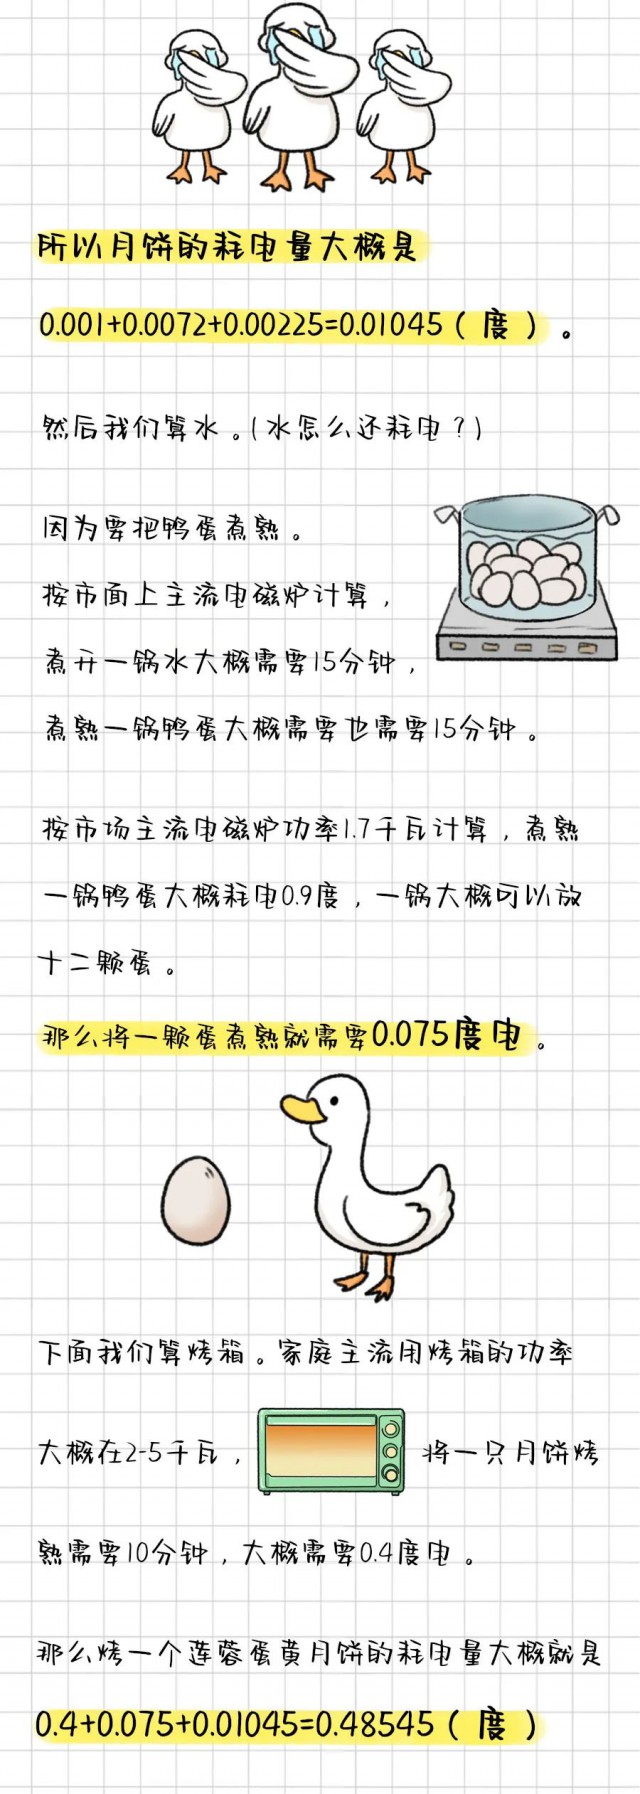 所以月饼的耗电量大概是
0.001+0.0072+0.00225=0.01045（度）。
然后我们算水。(水怎么还耗电？)
因为要把鸭蛋煮熟。
按市面上主流电磁炉计算，
煮开一锅水大概需要15分钟，
煮熟一锅鸭蛋大概需要也需要15分钟。
按市场主流电磁炉功率1.7千瓦计算，煮熟
一锅鸭蛋大概耗电0.9度，一锅大概可以放
十二颗蛋。
那么将一颗蛋煮熟就需要0.075度电。
下面我们算烤箱。家庭主流用烤箱的功率
大概在2-5千瓦，将一只月饼烤
熟需要10分钟，大概需要0.4度电。
那么烤一个莲蓉蛋黄月饼的耗电量大概就是
0.4+0.075+0.01045=0.48545（度）